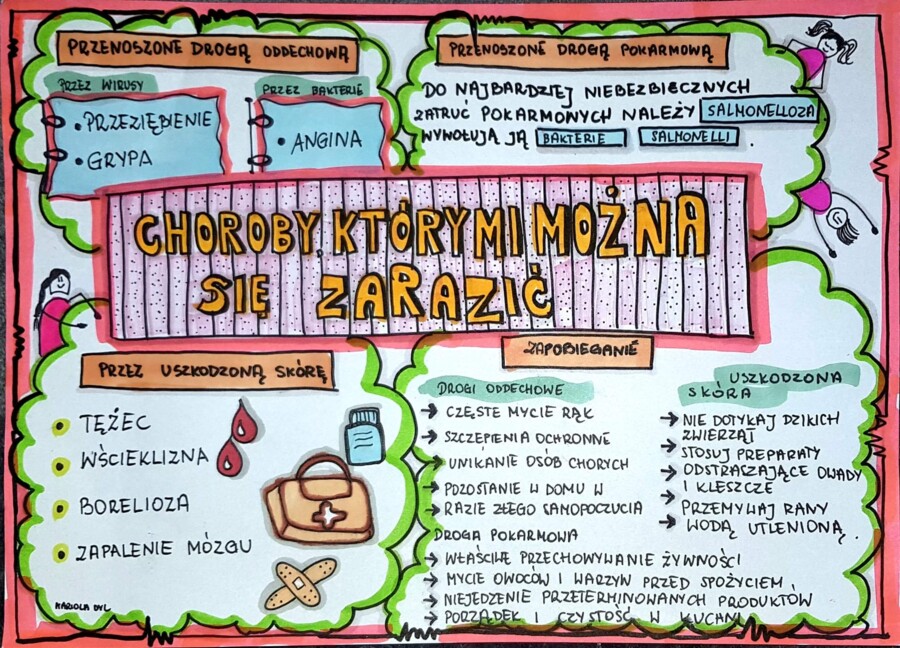 PRZENOSZONE DROGĄ ODDECHOWĄ
PRZEZ WIRUSY
• PRZEZIĘBIENIE
• GRYPA
PRZEZ BAKTERIE
• ANGINA
PRZENOSZONE DROGĄ POKARMOWĄ
DO NAJBARDZIEJ NIEBEZBIECZNYCH
ZATRUĆ POKARMOWYCH NALEŻY SALMONELLOZA
WYWOŁUJĄ JĄ BAKTERIE SALMONELLI .
CHOROBY, KTÓRYMI MOŻNA
SIĘ ZARAZIĆ
PRZEZ USZKODZONĄ SKÓRĘ
TĘŻEC
WŚCIEKLIZNA
BORELIOZA
ZAPALENIE MÓZGU
MARIOLA DYL
ZAPOBIEGANIE
DROGI ODDECHOWE
→ CZĘSTE MYCIE RĄK
→ SZCZEPIENIA OCHRONNE
→ UNIKANIE OSÓB CHORYCH
→ POZOSTANIE W DOMU W
→ RAZIE ZŁEGO SAMOPOCZUCIA
DROGA POKARMOWA
→ WŁAŚCIWE PRZECHOWYWANIE ŻYWNOŚCI
→ MYCIE OWOCÓW I WARZYW PRZED SPOŻYCIEM
→ NIEJEDZENIE PRZETERMINOWANYCH PRODUKTÓW
→ PORZĄDEK I CZYSTOŚĆ W KUCHNI
USZKODZONA
SKÓRA
→ NIE DOTYKAJ DZIKICH
→ ZWIERZĄT
→ STOSUJ PREPARATY
→ ODSTRASZAJĄCE OWADY
→ I KLESZCZE
→ PRZEMYWAJ RANY
→ WODĄ UTLENIONĄ.